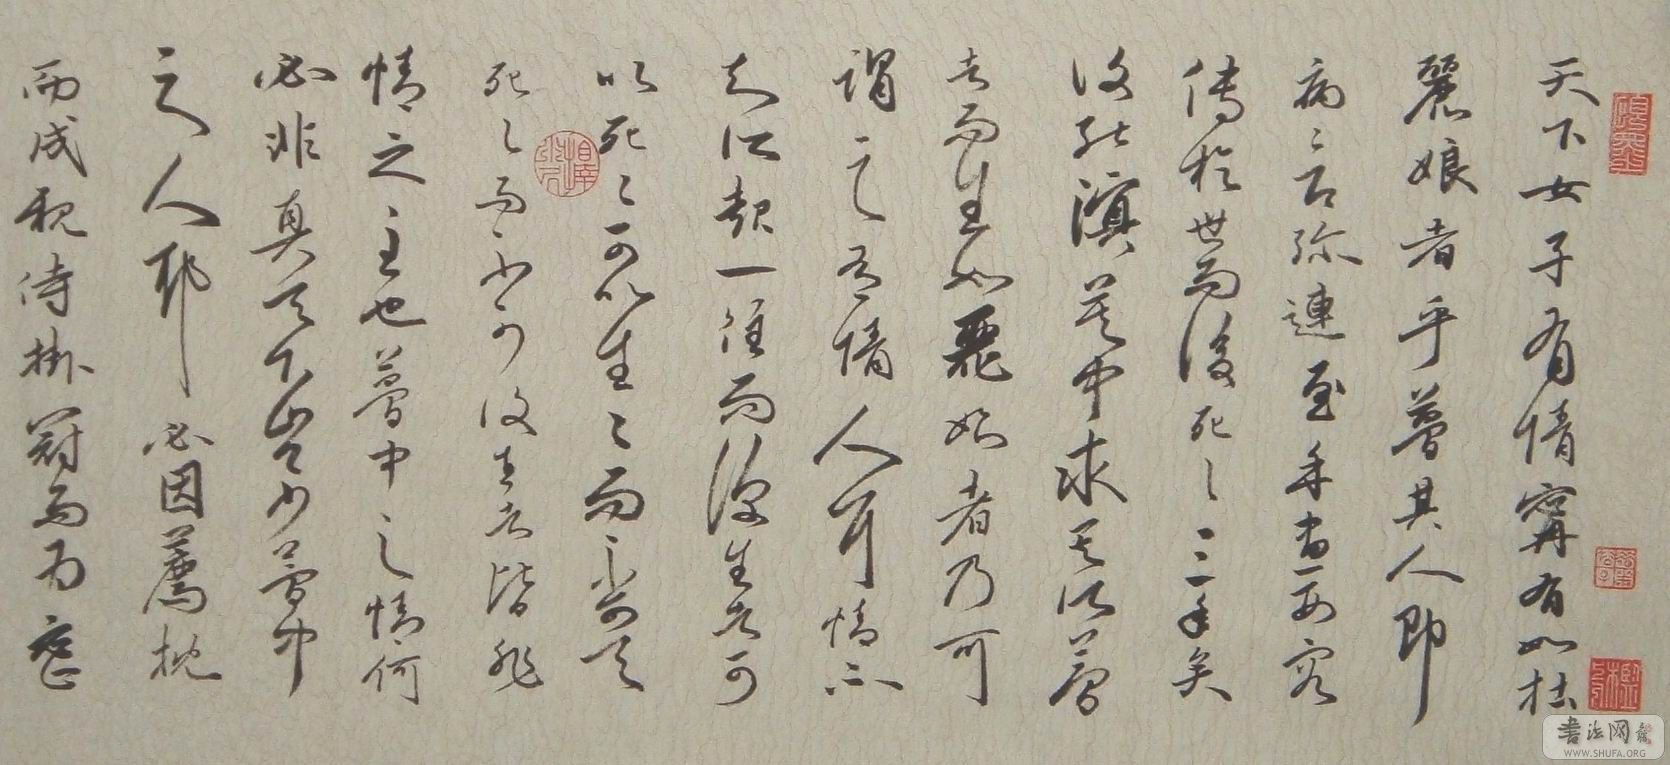 天下女子有情寧有如杜
麗娘者乎夢其人即
病々即弥連至手畫形容
傳於世而後死々三年矣
復能溟莫中求其所夢
者而生如麗娘者乃可
謂之有情人耳情不
知所起一往而深生者可
以死々可以生々而不可與
死々而不可復生者皆非
情之至也夢中之情何
必非真天下豈少夢中
之人耶必因薦枕
而成親待掛冠而為密
書法网
WWW.SHUFA.ORG